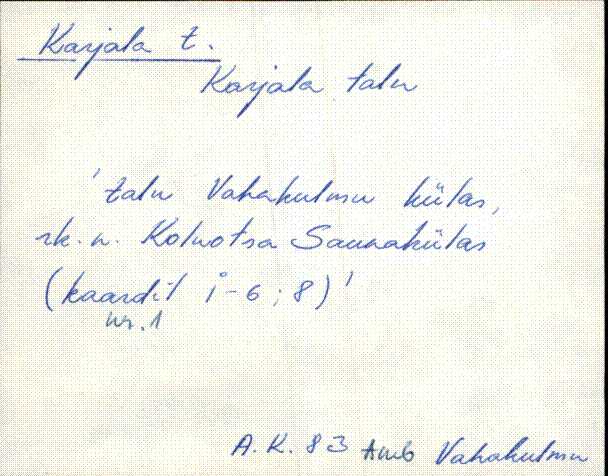 Karjala t.
Karjala talu
'talu Vahakulmu külas,
rk. n. Koluotsa Saunakülas
(kaardil i-6; 8)'
nr. 1
A. K. 83 Amb Vahakulmu